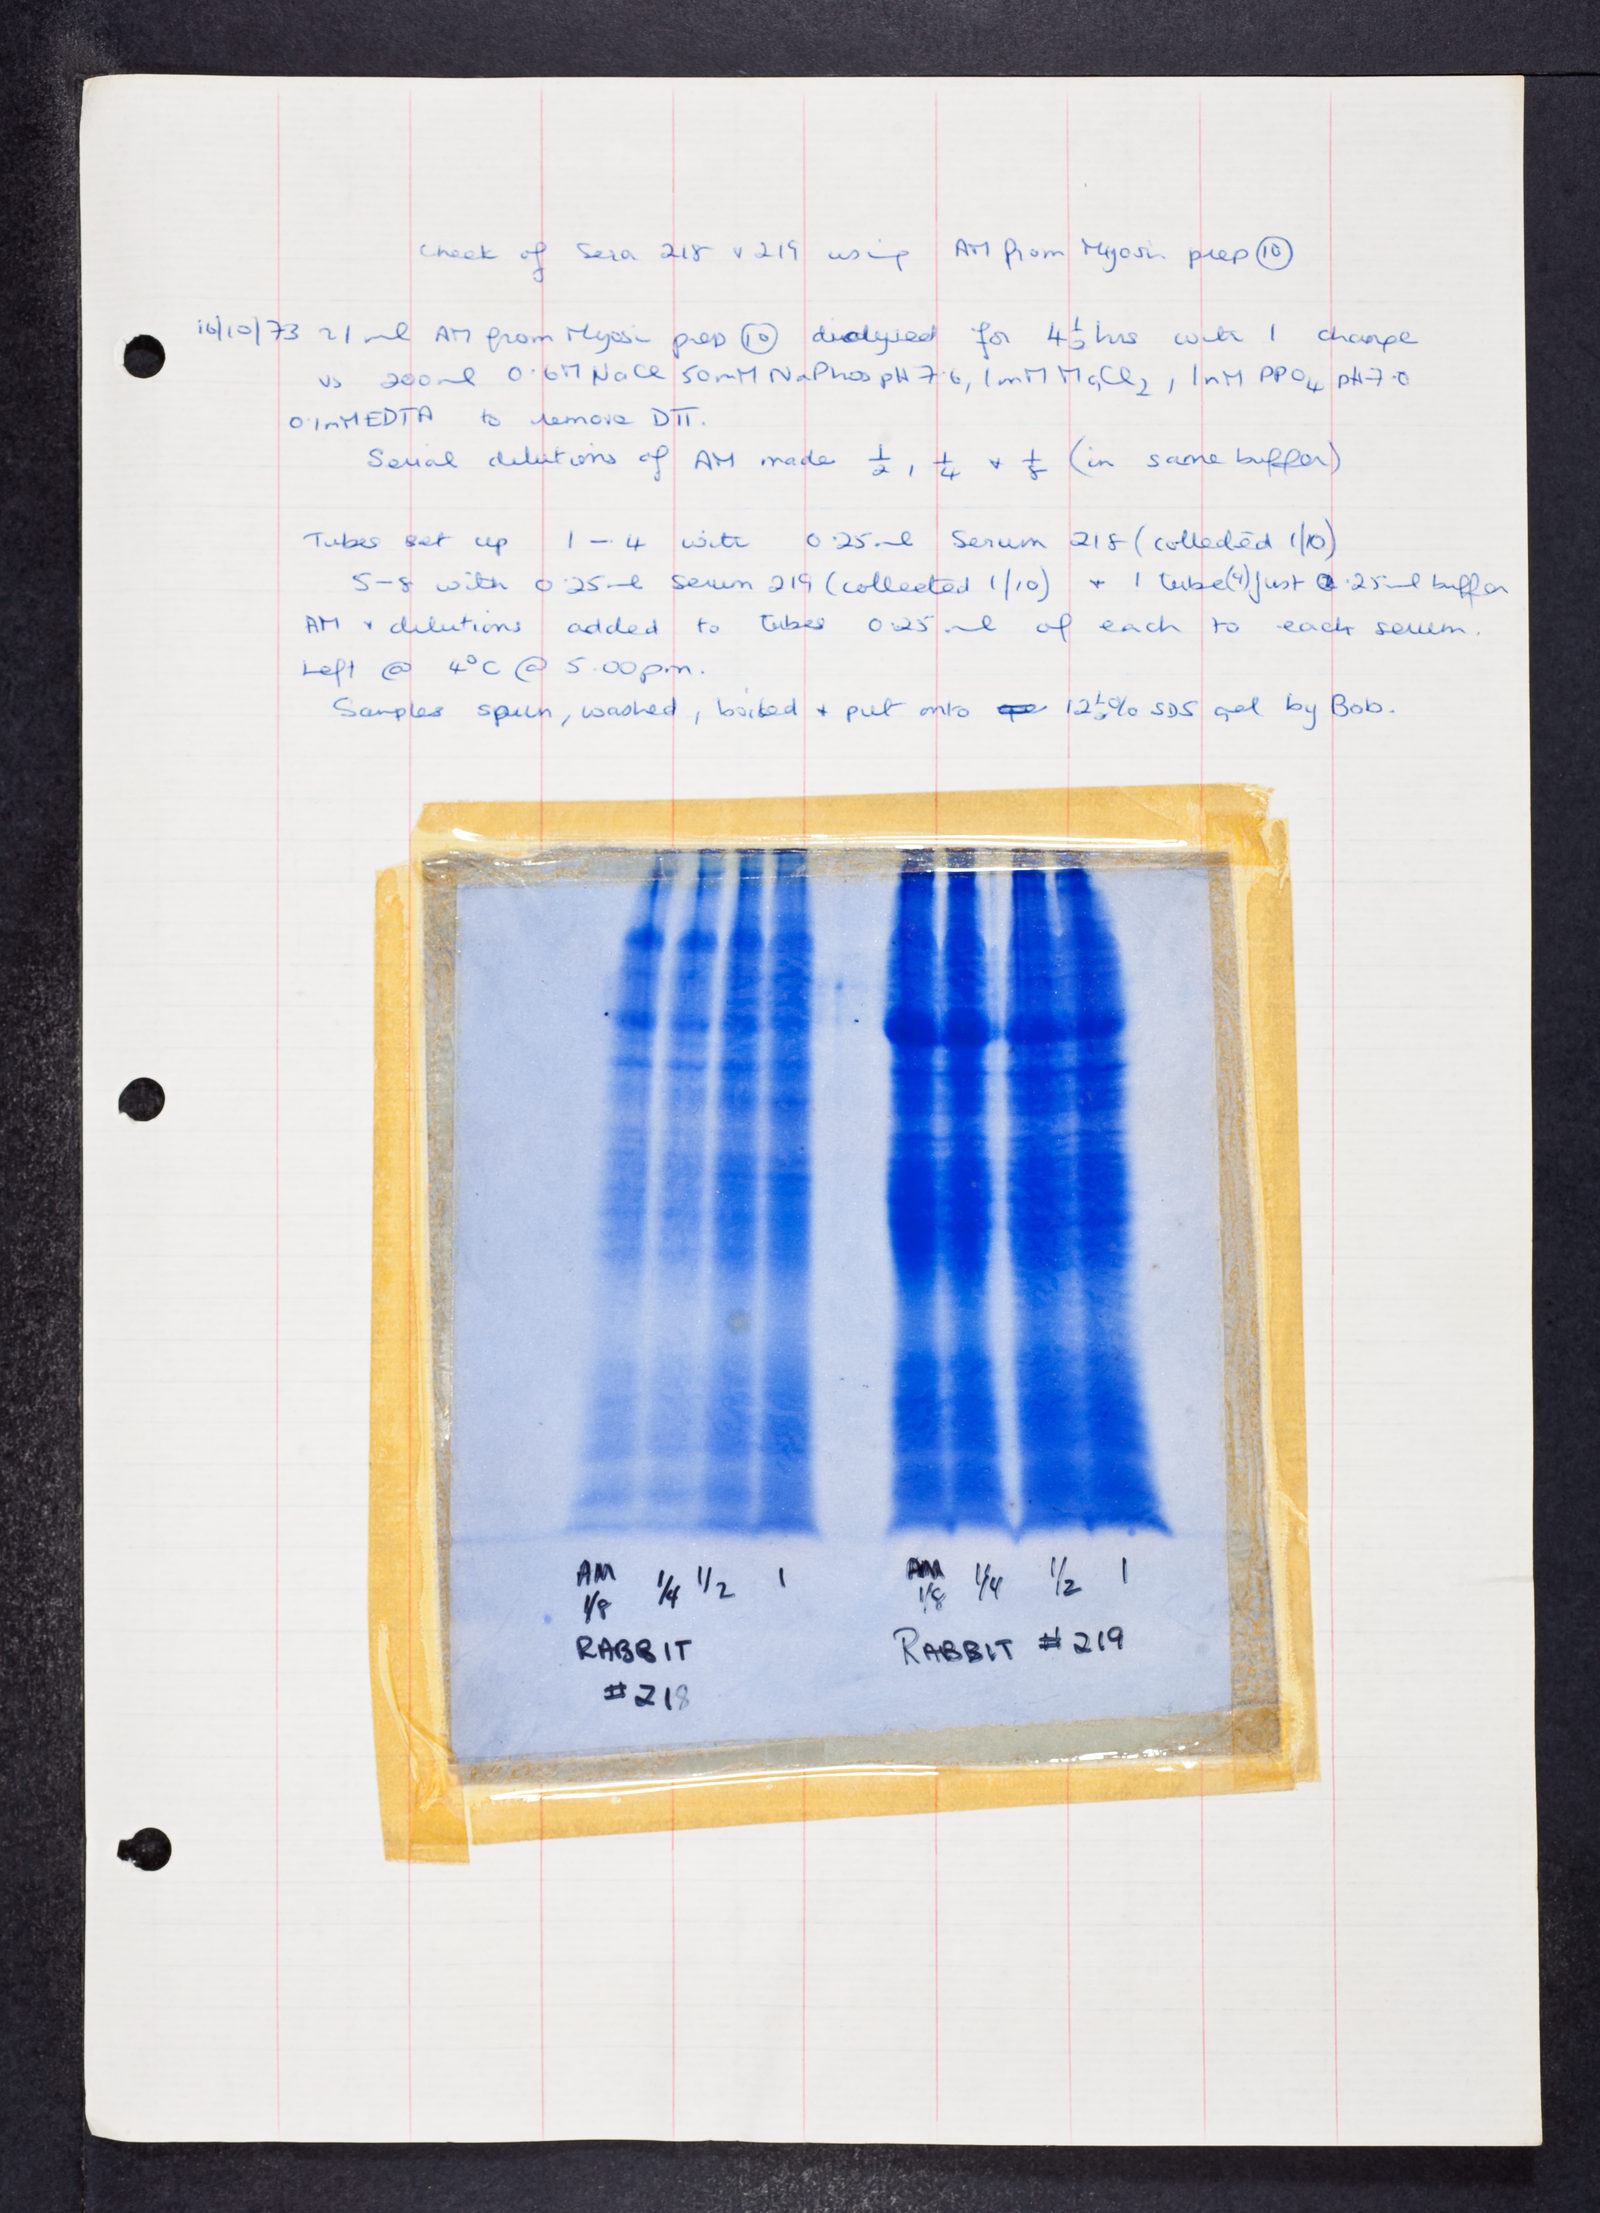 Check of Sera 218 + 219 using AM from Myosin prep ⑩
16/10/73 ~1 ml AM from Myosin prep ⑩ dialysed for 4½ hrs with 1 change
vs 200ml 0.6M NaCl 50mM NaPhos pH 7.6, 1mM MgCl2, 1mM PPO4 pH 7.0
0.1mM EDTA to remove DTT.
Serial dilutions of AM made 1/2, 1/4 + 1/8 (in same buffer)
Tubes set up 1 – 4 with 0.25ml Serum 218 (collected 1/10)
5–8 with 0.25ml Serum 219 (collected 1/10) + 1 tube (9) just 0.25ml buffer
AM + dilutions added to tubes 0.25ml of each to each serum.
Left @ 4°C @ 5.00pm.
Samples spun, washed, boiled + put onto 12½% SDS gel by Bob.
AM 1/8 1/4 1/2 1
RABBIT
#218
AM 1/8 1/4 1/2 1
RABBIT #219